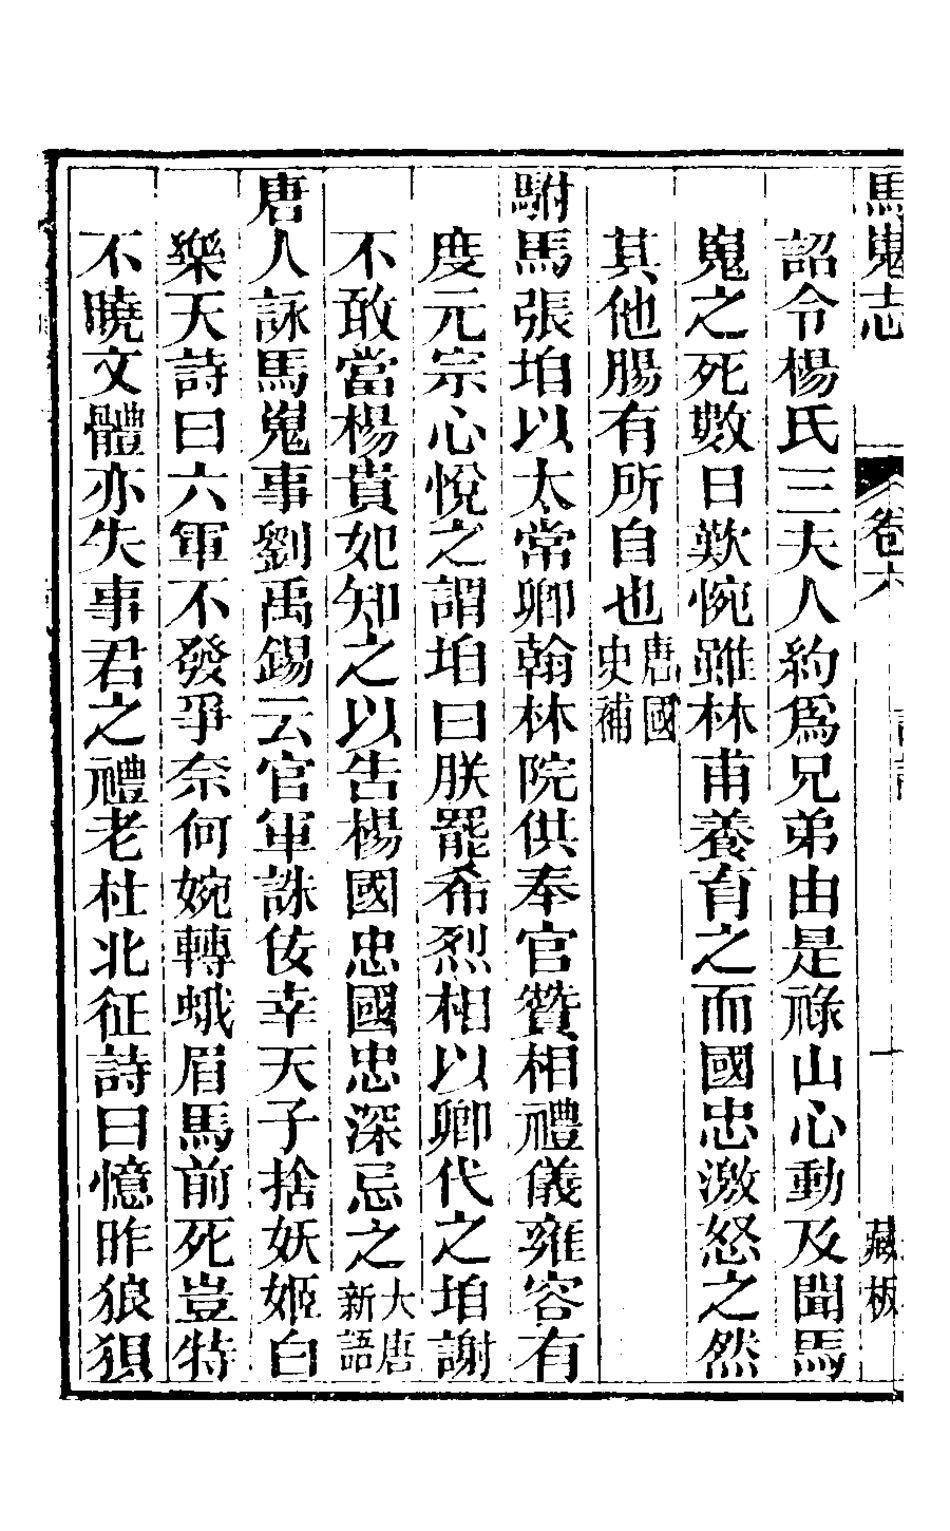 馬嵬志 卷六 一 藏板
詔令楊氏三夫人約爲兄弟由是祿山心動及聞馬
嵬之死數日歎惋雖林甫養育之而國忠激怒之然
其他腸有所自也唐國史補
駙馬張垍以太常卿翰林院供奉官贊相禮儀雍容有
度元宗心悅之謂垍曰朕罷希烈相以卿代之垍謝
不敢當楊貴妃知之以告楊國忠國忠深忌之大唐新語
唐人詠馬嵬事劉禹錫云官軍誅佞幸天子捨妖姬白
樂天詩曰六軍不發爭奈何婉轉蛾眉馬前死豈特
不曉文體亦失事君之禮老杜北征詩曰憶昨狼狽